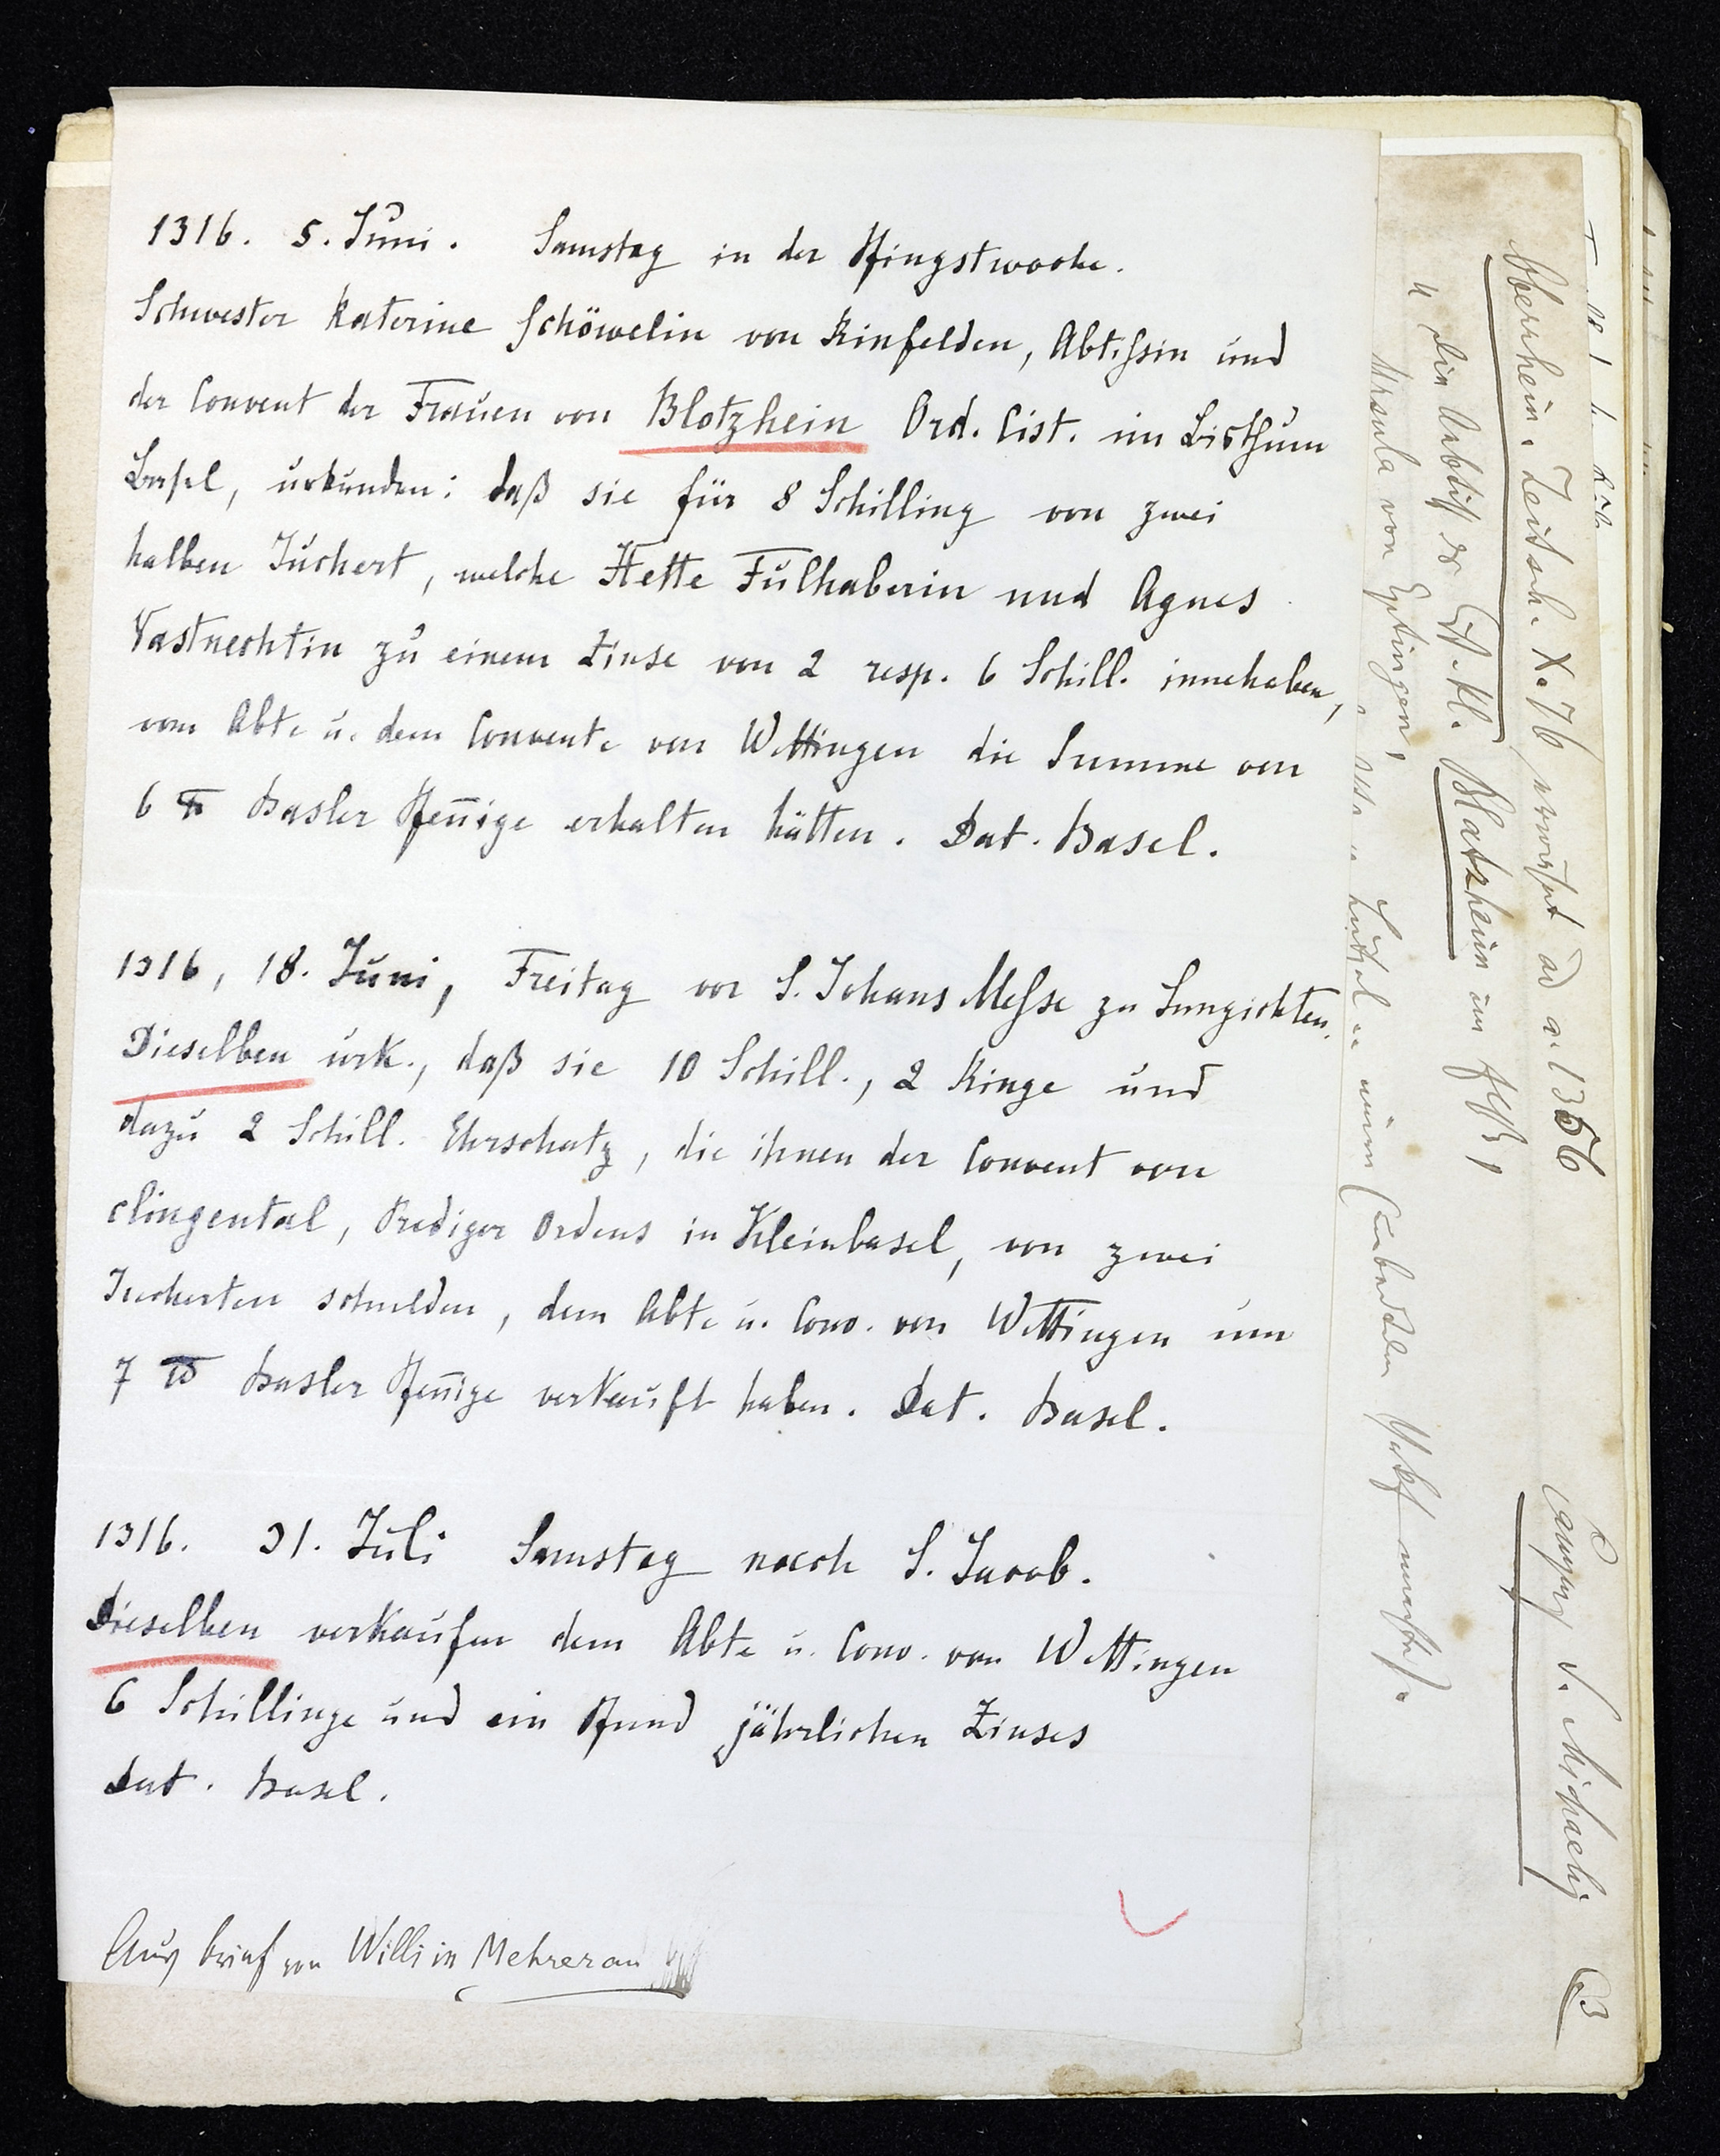 1316. 5. Juni. Samstag in der Pfingstwoche.
Schwester Katerine Schöwelin von Rinfelden, Abtissin und
der Convent der Frauen von Blotzhein Ord. Cist. im Bisthum
Basel, urkunden: daß sie für 8 Schilling von zwei
halben Juchert, welche Hette Fulhaberin und Agnes
Vastnechtin zu einem Zinse von 2 resp. 6 Schill. innehaben,
vom Abte u. dem Convente von Wettingen die Summe von
6 ℔ Basler Pfen̅ige erhalten hätten. Dat. Basel.
1316, 18. Juni, Freitag vor S. Johans Messe zu Sungichten.
Dieselben urk., daß sie 10 Schill., 2 Ringe und
dazu 2 Schill. Ehrschatz, die ihnen der Convent von
Clingental, Prediger Ordens in Kleinbasel, von zwei
Jucherten schulden, dem Abte u. Conv. von Wettingen um
7 ℔ Basler Pfen̅ige verkauft haben. Dat. Basel.
1316. 31. Juli Samstag nach S. Jacob.
Dieselben verkaufen dem Abte u. Conv. von Wettingen
6 Schillinge und ein Pfund jährlichen Zinses
Dat. Basel.
Aus brief von Willi in Mehrerau
Oberrhein. Zeitsch. X. 76 ad a. 1356
die Aebtiss Blatzheim im
Ursula von Eptingen,
S. Michaelis